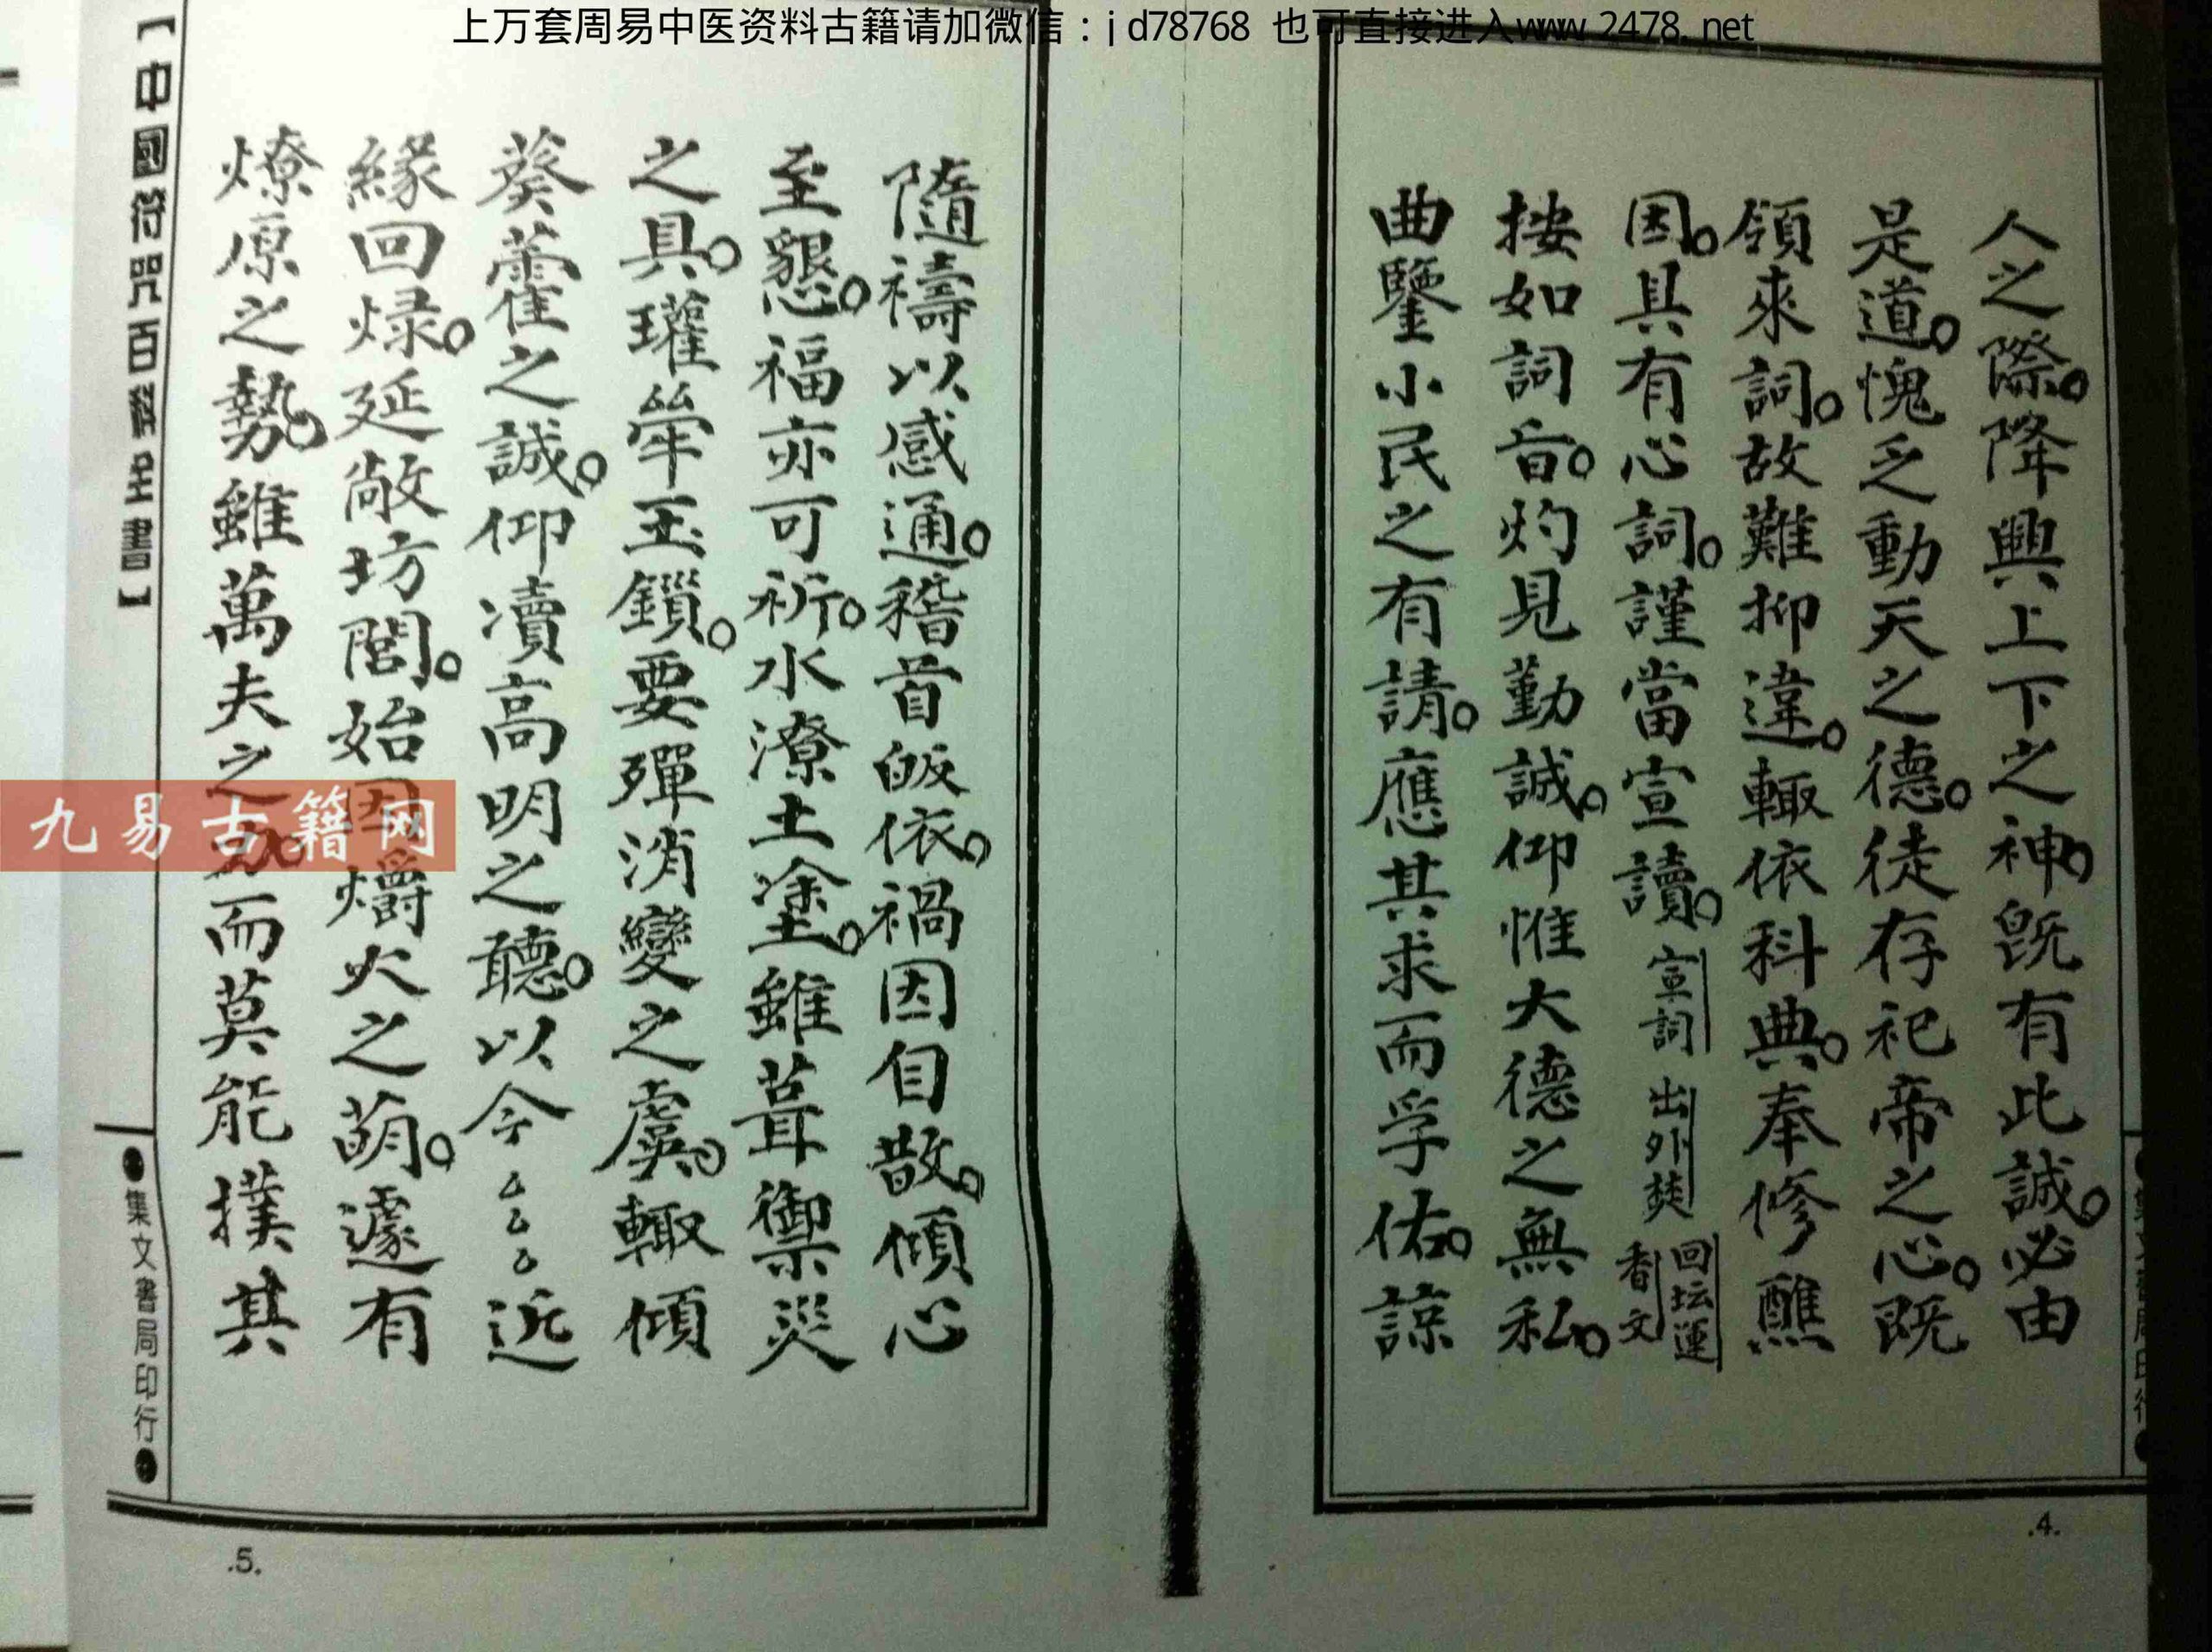 上万套周易中医资料古籍请加微信：jd78768 也可直接进入www.2478.net
人之際。降興上下之神。既有此誠。必由
是道。愧乏動天之德。徒存祀帝之心。既
領來詞。故難抑違。輙依科典。奉修醮
因。具有心詞。謹當宣讀。宣詞 出外焚 回坛運香文
按如詞旨。灼見勤誠。仰惟大德之無私。
曲鑒小民之有請。應其求而孚佑。諒
.4.
隨禱以感通。稽首皈依。禍因自散。傾心
至懇。福亦可祈。水潦土塗。雖葺禦災
之具。瓘斝玉鎖。要殫消變之虞。輙傾
葵藿之誠。仰凟高明之聽。以今△△△近
緣回煣。延敵坊閭。始因爝火之萌。遽有
燎原之勢。雖萬夫之力。而莫能撲其
【中國符咒百科全書】
●集文書局印行●
.5.
九易古籍网